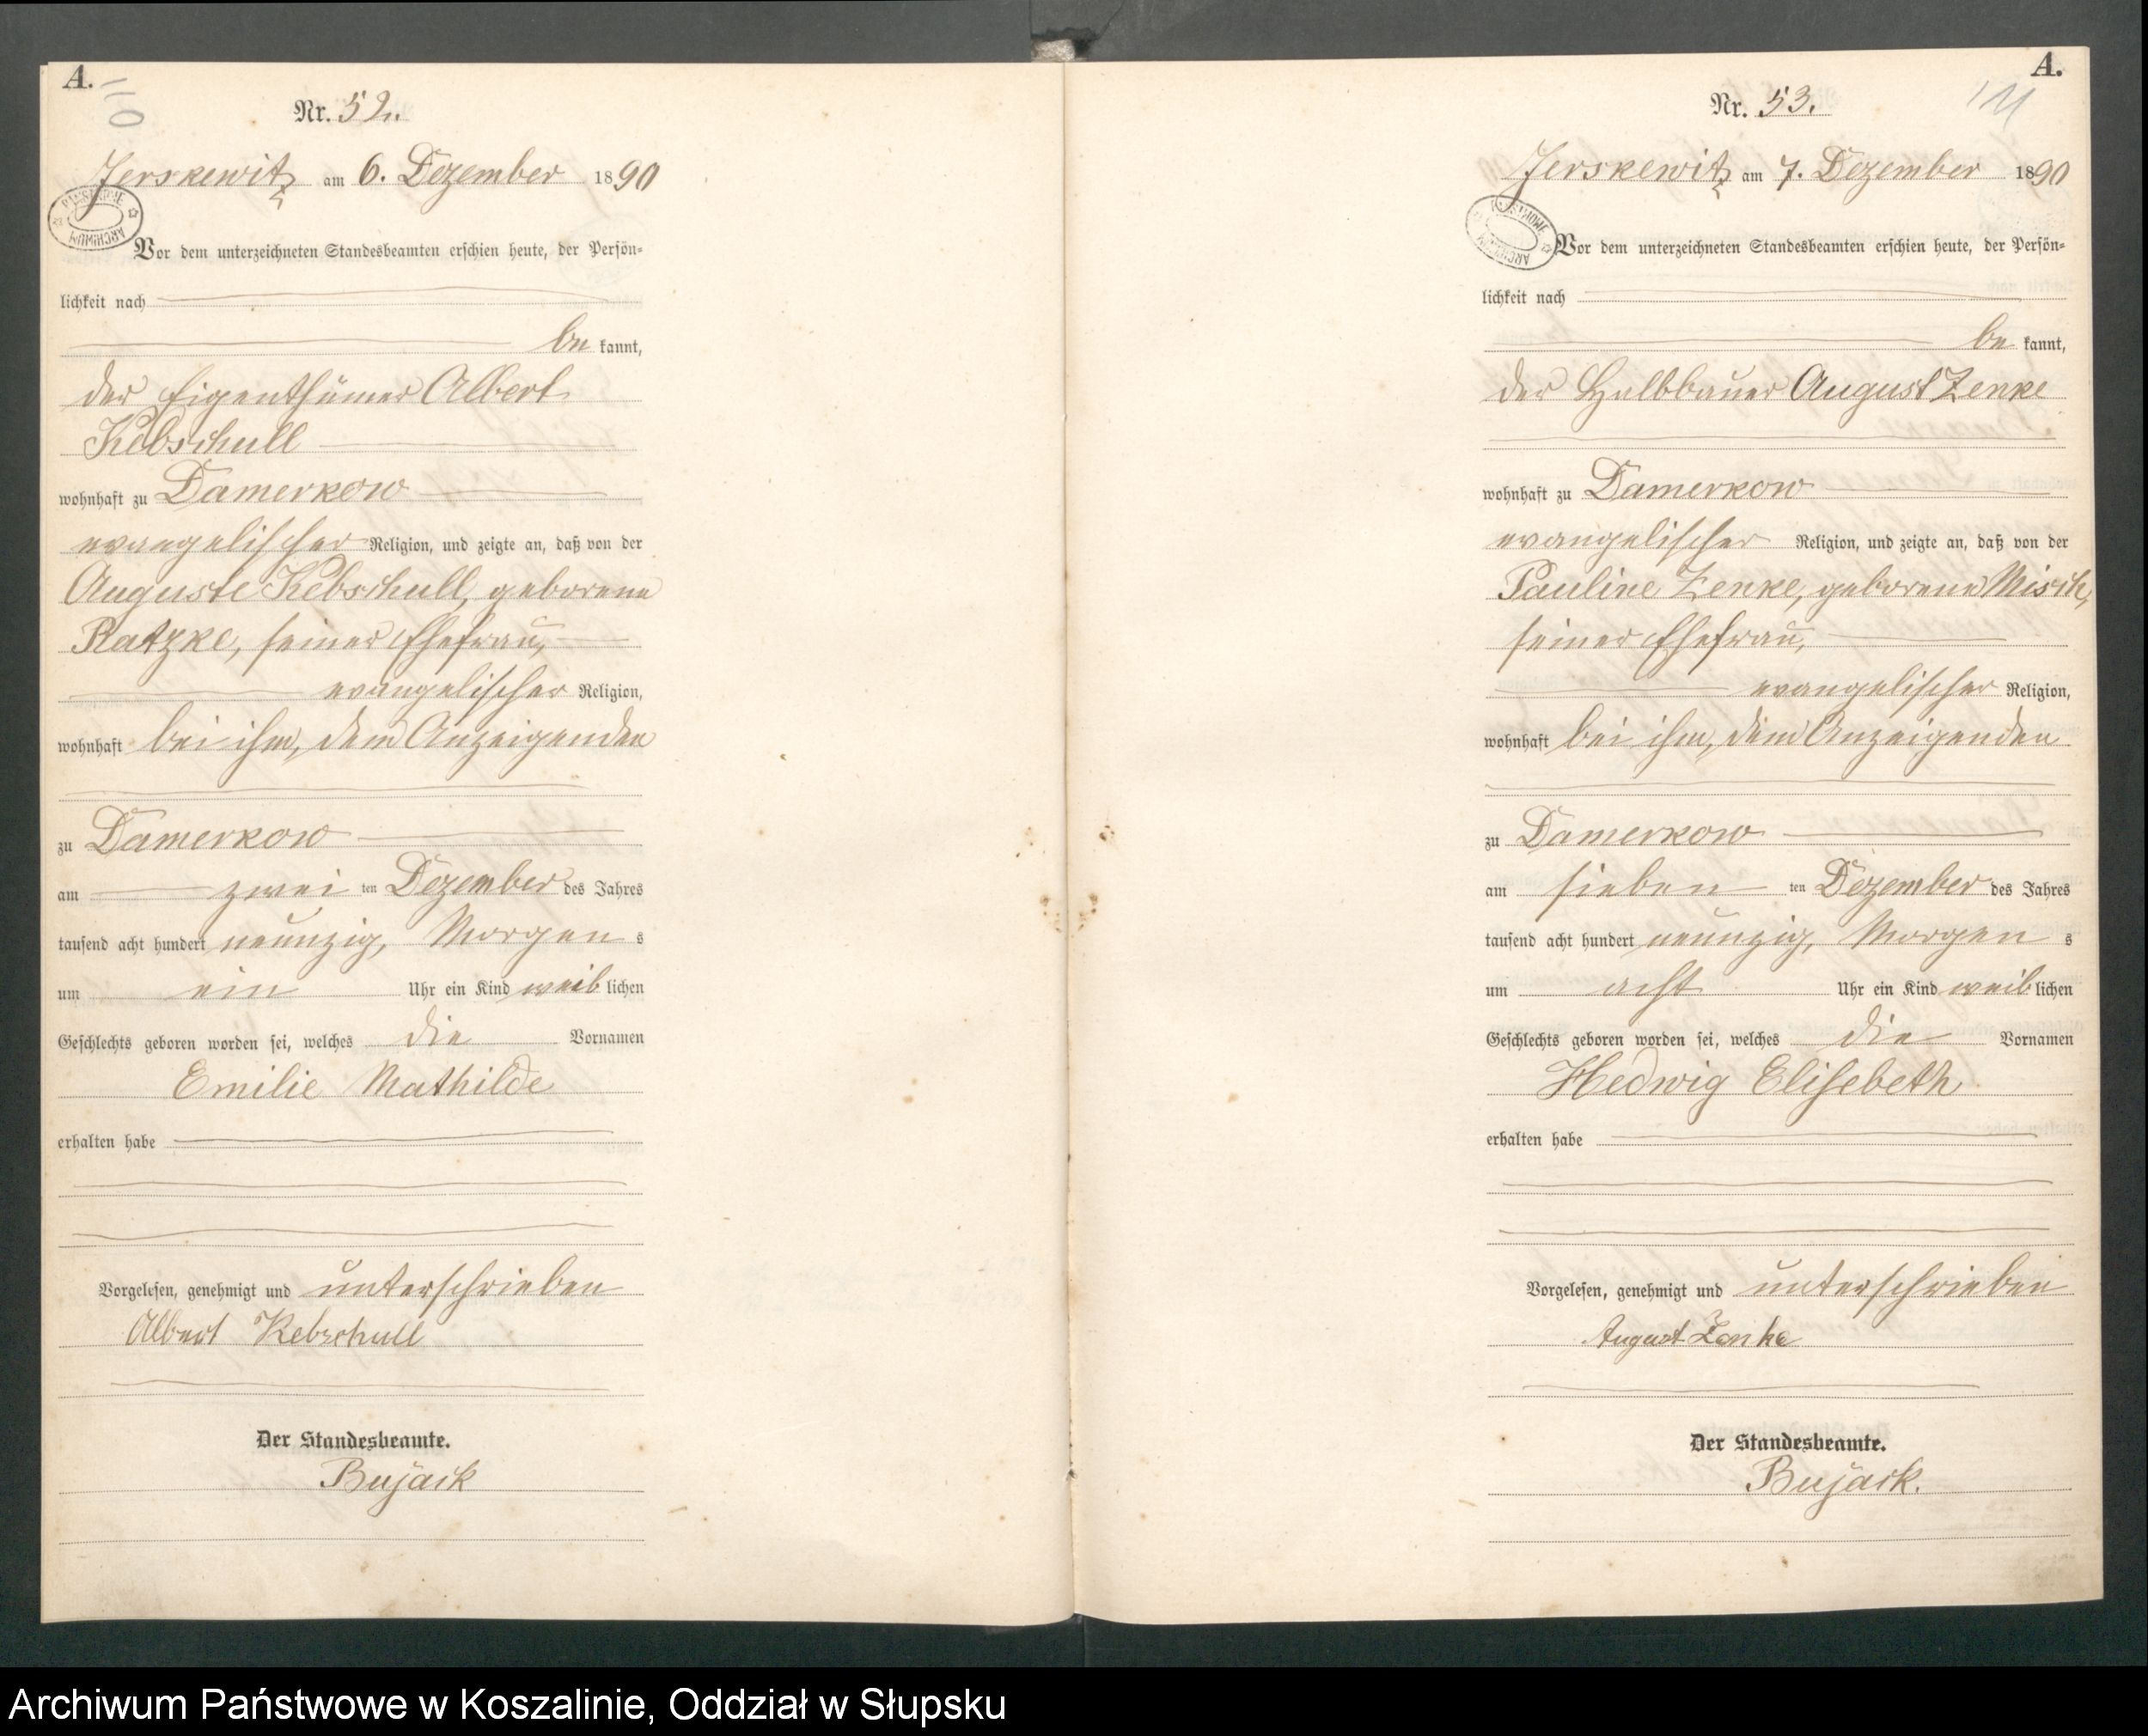 A.
110
Nr. 52.
Jerskewitz am 6. Dezember 1890
Vor dem unterzeichneten Standesbeamten erschien heute, der Persön-
lichkeit nach
be kannt,
der Eigenthümer Albert
Kebschull
wohnhaft zu Damerkow
evangelischer Religion, und zeigte an, daß von der
Auguste Kebschull, geborene
Ratzke, seiner Ehefrau,
evangelischer Religion,
wohnhaft bei ihm, dem Anzeigenden
zu Damerkow
am zwei ten Dezember des Jahres
tausend acht hundert neunzig, Morgen s
um ein Uhr ein Kind weib lichen
Geschlechts geboren worden sei, welches die Vornamen
Emilie Mathilde
erhalten habe
Vorgelesen, genehmigt und unterschrieben
Albert Kebschull
Der Standesbeamte.
Bujack
A.
Nr. 53.
Jerskewitz am 7. Dezember 1890
Vor dem unterzeichneten Standesbeamten erschien heute, der Persön-
lichkeit nach
be kannt,
der Halbbauer August Zenke
wohnhaft zu Damerkow
evangelischer Religion, und zeigte an, daß von der
Pauline Zenke, geborene Misch,
seiner Ehefrau,
evangelischer Religion,
wohnhaft bei ihm, dem Anzeigenden
zu Damerkow
am sieben ten Dezember des Jahres
tausend acht hundert neunzig, Morgen s
um acht Uhr ein Kind weib lichen
Geschlechts geboren worden sei, welches die Vornamen
Hedwig Elisebeth
erhalten habe
Vorgelesen, genehmigt und unterschrieben
August Zenke
Der Standesbeamte.
Bujack.
Archiwum Państwowe w Koszalinie, Oddział w Słupsku